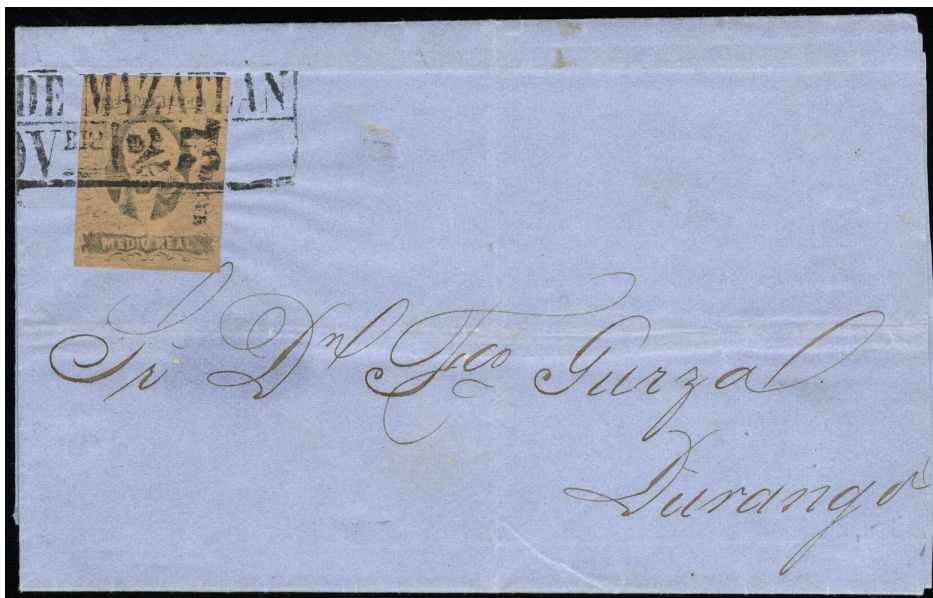 DE MAZATLAN
OVBRE
MEDIO REAL
Sr Dn Fco Gurza
Durango